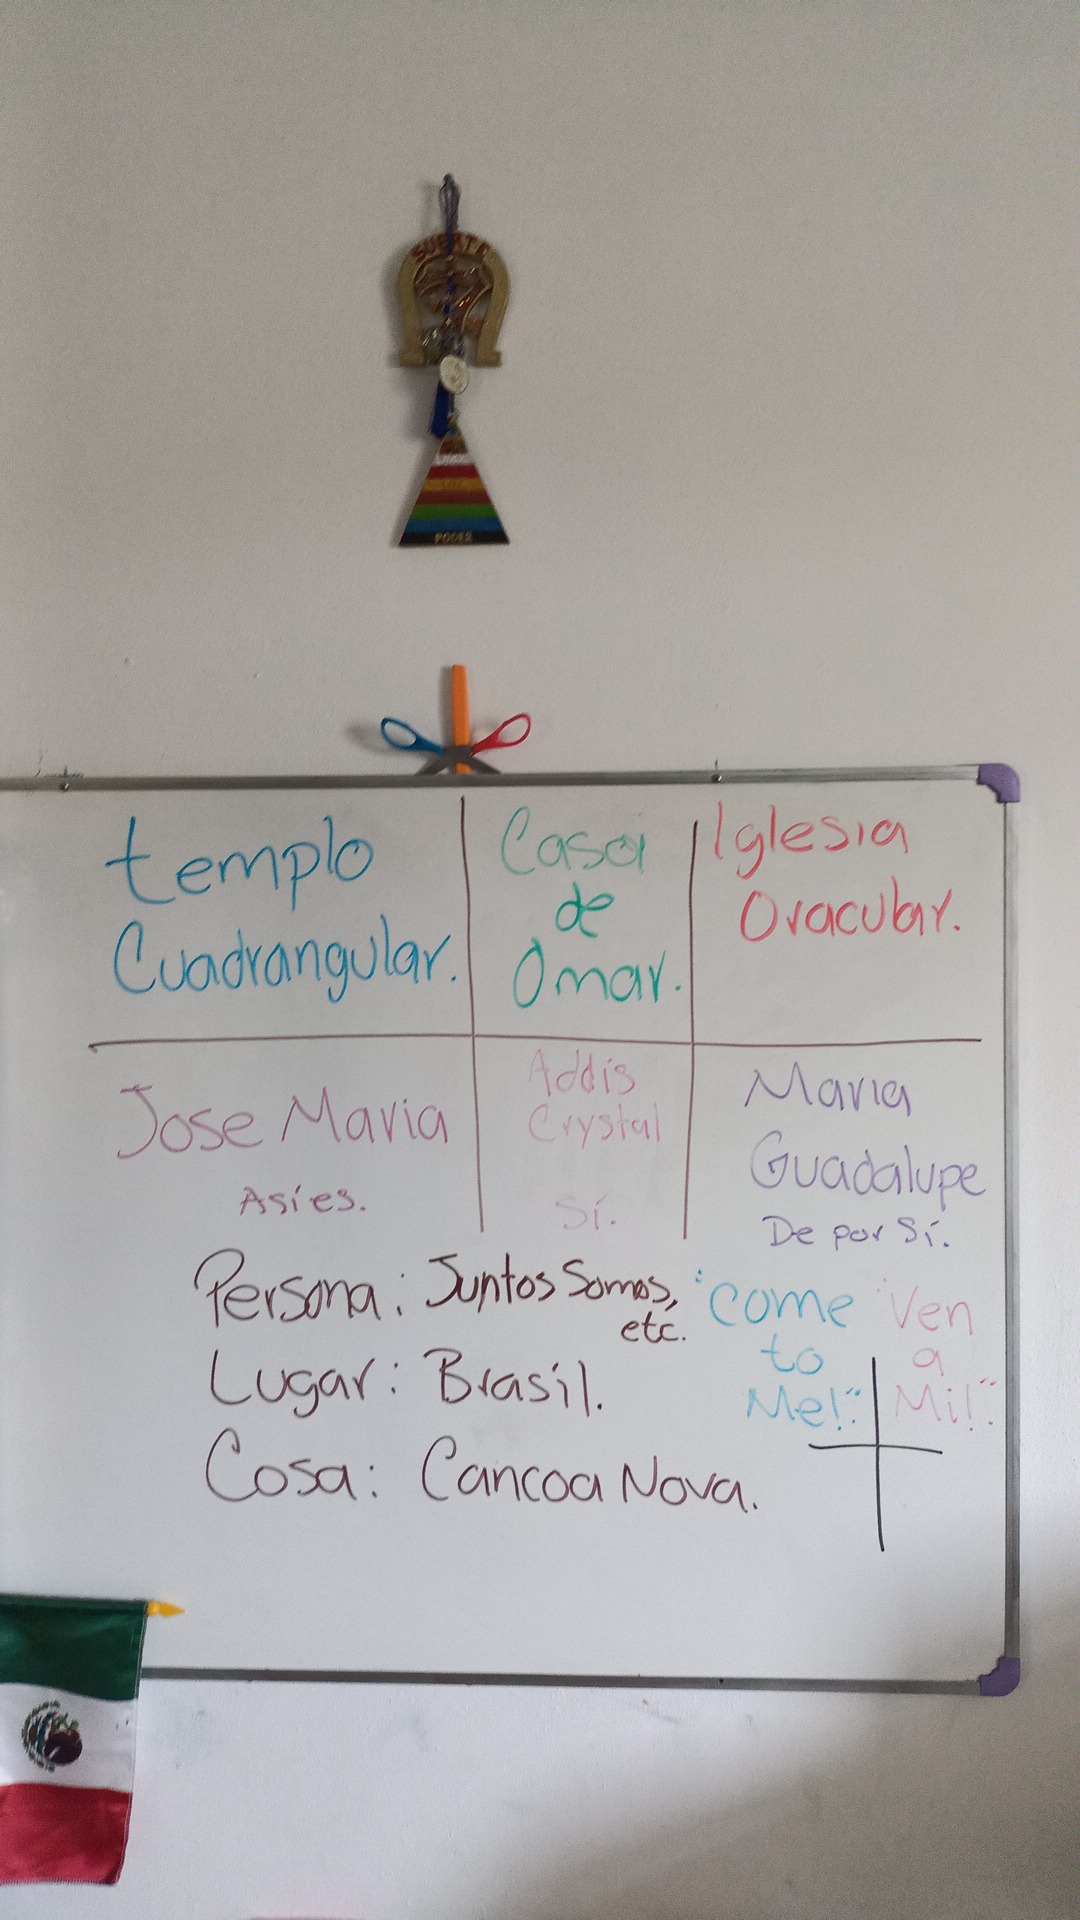 SUERTE
PODER
templo
Cuadrangular.
Casa
de
Omar.
Iglesia
Oracular.
Jose Maria
Así es.
Addis
Crystal
Sí.
Maria
Guadalupe
De por Sí.
Persona: Juntos Somos,
etc.
Lugar: Brasil.
Cosa: Cancoa Nova.
"Come
to
Me!".
"Ven
a
Mi!".